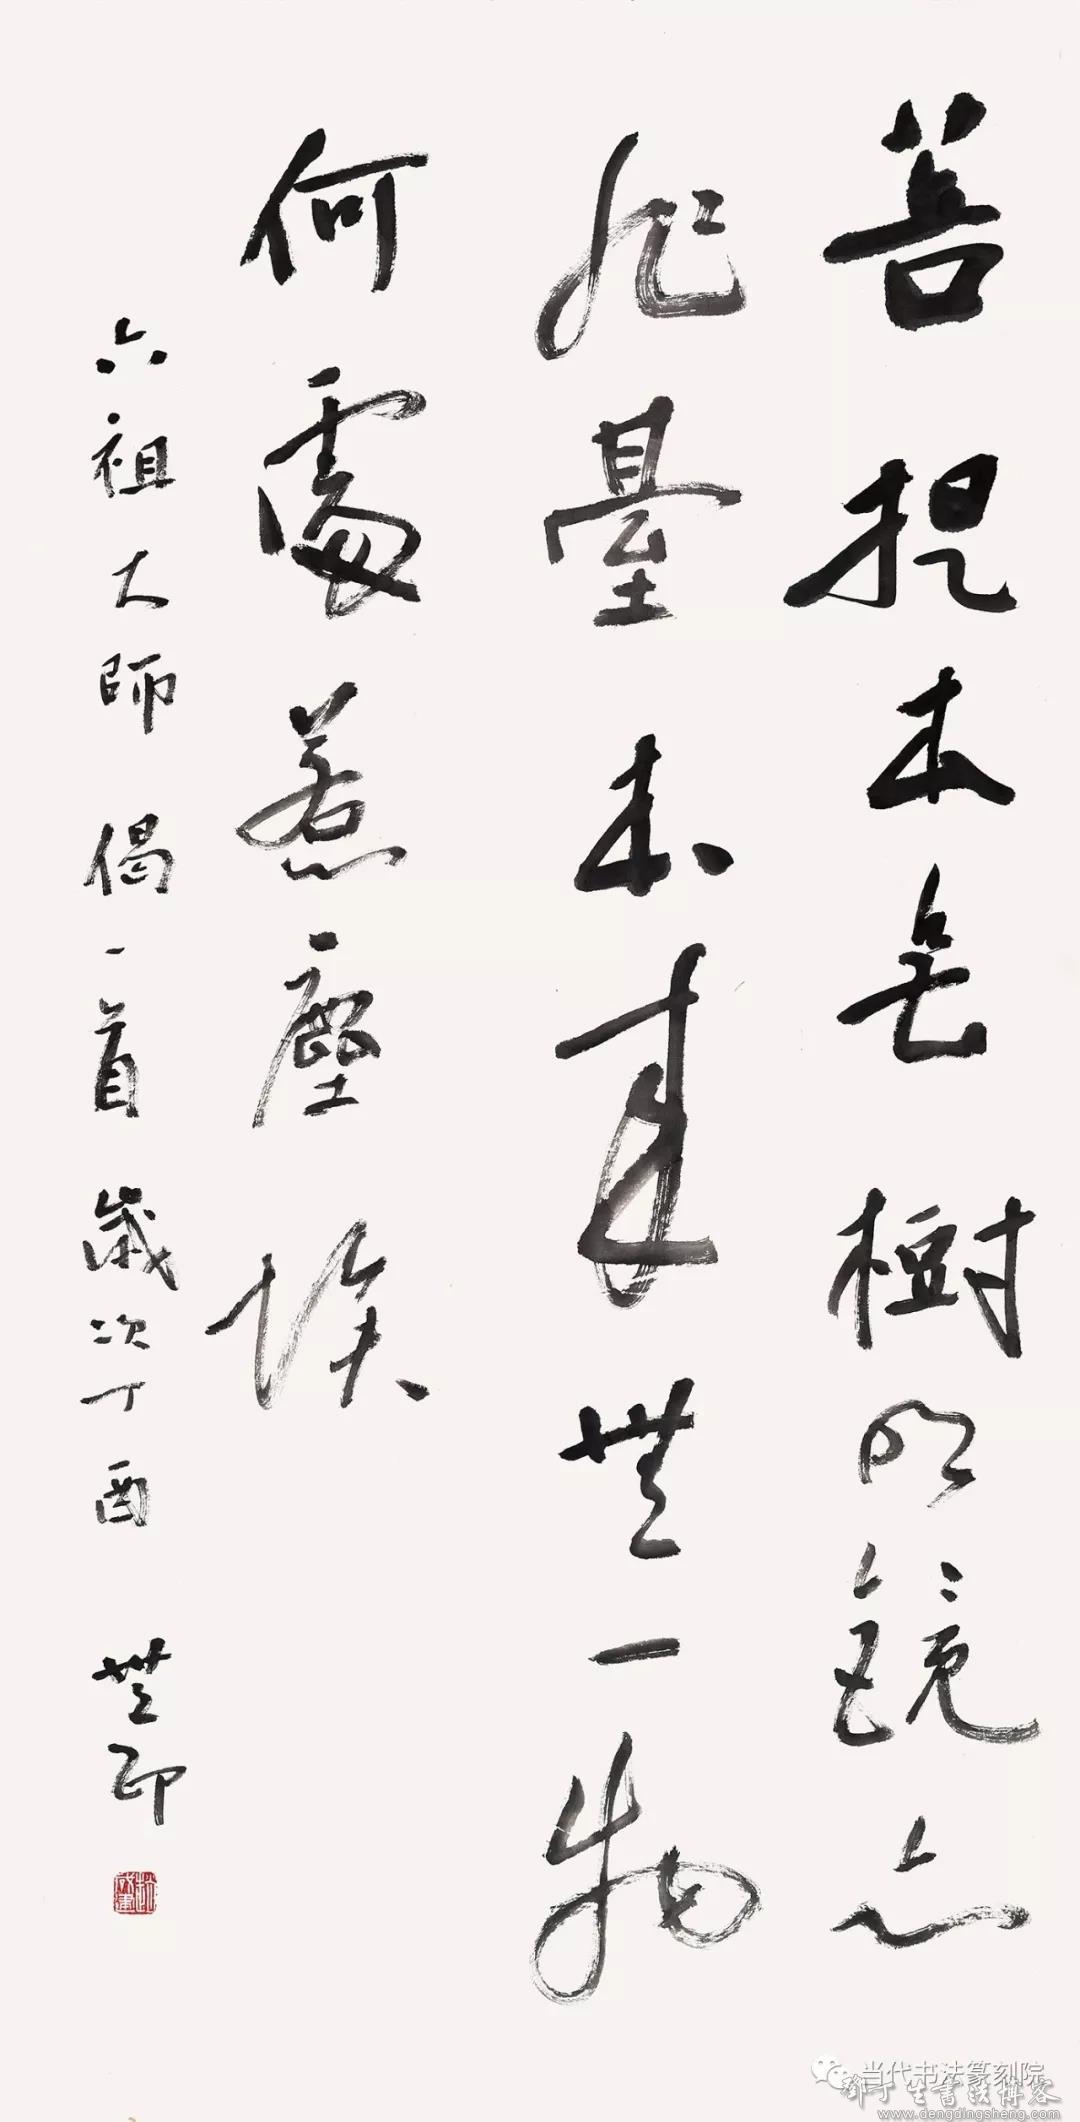 菩提本無樹明鏡亦
非臺本來無一物
何處惹塵埃
六祖大師偈一首歲次丁酉 無
当代书法篆刻院
邓丁生書法博客
www.dengdingsheng.com